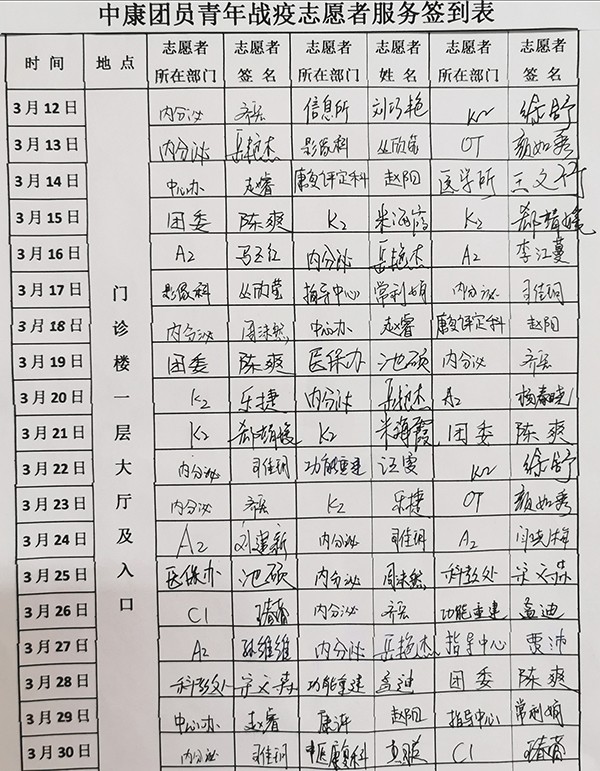 中康团员青年战疫志愿者服务签到表
时间 地点 志愿者所在部门 志愿者签名 志愿者所在部门 志愿者姓名 志愿者所在部门 志愿者签名
门诊楼一层大厅及入口
3月12日 内分泌 信息所 刘巧艳 K2
3月13日 内分泌 岳艳杰 影像科 丛欣莹 OT 颜如秀
3月14日 中心办 赵睿 康复评定科 赵阳 医学所
3月15日 团委 陈爽 K2 K2
3月16日 A2 马玉红 内分泌 岳艳杰 A2 李江蔓
3月17日 影像科 丛欣莹 指导中心 常利娟 内分泌 司佳钏
3月18日 内分泌 中心办 赵睿 康复评定科 赵阳
3月19日 团委 陈爽 医保办 池硕 内分泌
3月20日 K2 乐捷 内分泌 岳艳杰 A2 杨春晓
3月21日 K2 K2 米海霞 团委 陈爽
3月22日 内分泌 司佳钏 功能重建 汪雯 K2
3月23日 内分泌 K2 乐捷 OT 颜如秀
3月24日 A2 刘建新 内分泌 司佳钏 A2
3月25日 医保办 池硕 内分泌 科教处
3月26日 C1 内分泌 功能重建 孟迪
3月27日 A2 孙维维 内分泌 岳艳杰 指导中心 贾沛
3月28日 科教处 功能重建 孟迪 团委 陈爽
3月29日 中心办 赵睿 康评 赵阳 指导中心 常利娟
3月30日 内分泌 司佳钏 中医康复科 C1